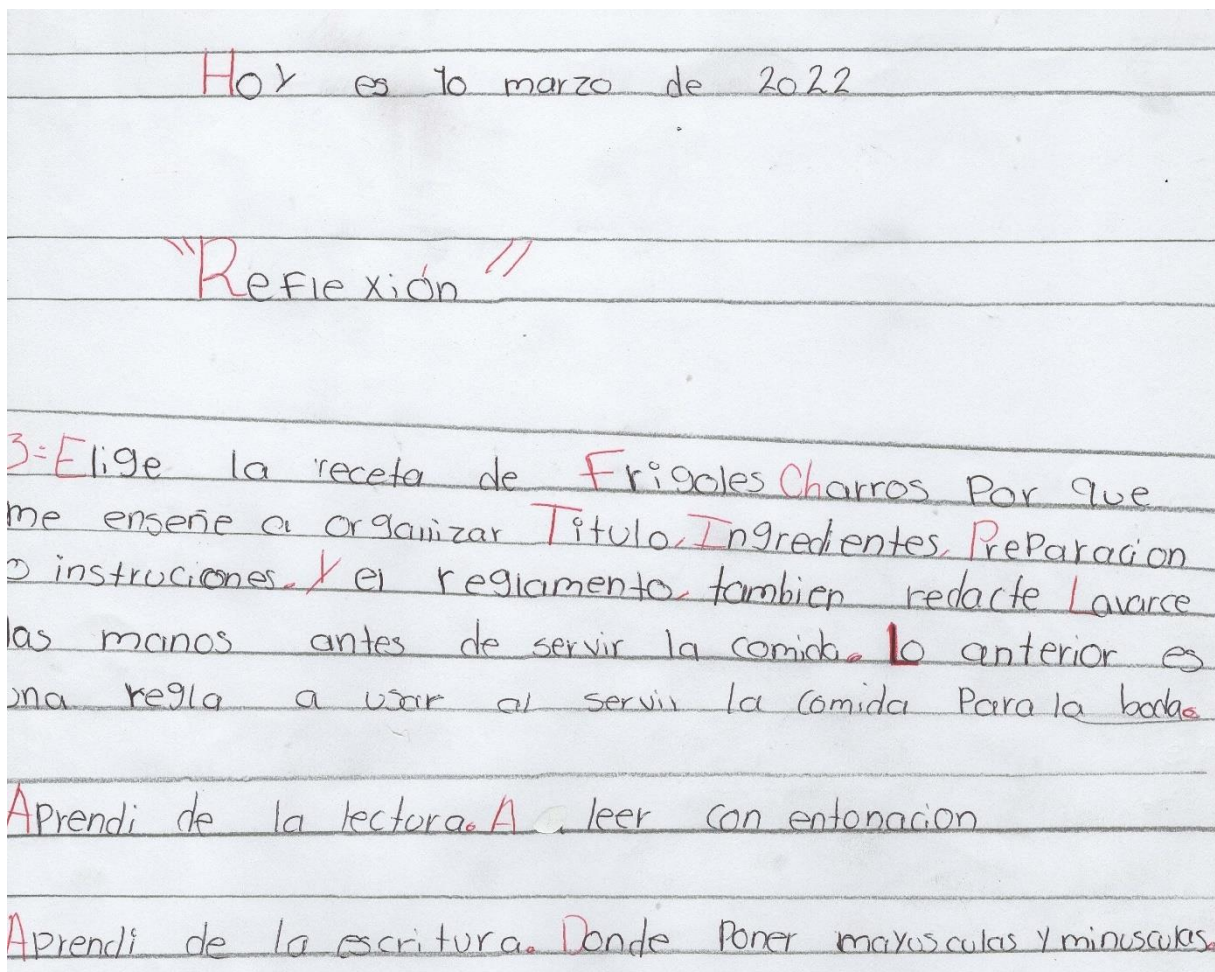 Hoy es 10 marzo de 2022
"Reflexión"
3=Elige la receta de Frigoles Charros Por que
me enseñe a organizar Titulo, Ingredientes, PreParacion
o instruciones. Y el reglamento, tambien redacte Lavarce
las manos antes de servir la comida. Lo anterior es
una regla a usar al servir la comida Para la boda.
APrendi de la lectora. A leer con entonacion
Aprendi de la escritura. Donde Poner mayusculas y minusculas.